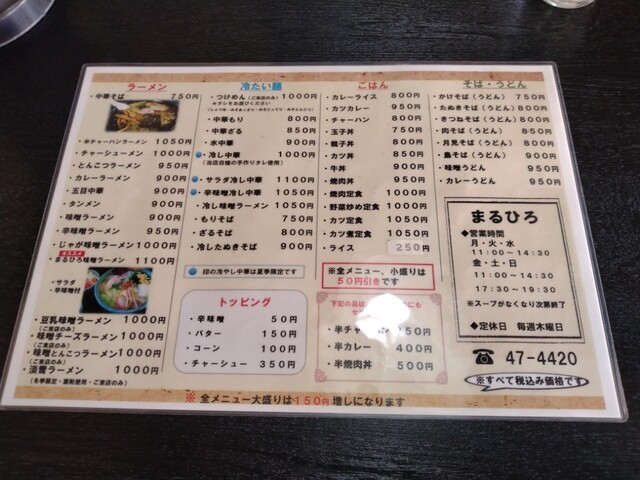 ラーメン
・中華そば 750円
・半チャーハンラーメン 1050円
・チャーシューメン 1000円
・とんこつラーメン 950円
・カレーラーメン 900円
・五目中華 900円
・タンメン 900円
・味噌ラーメン 900円
・辛味噌ラーメン 950円
・じゃが味噌ラーメン 1000円
オススメ
・まるひろ味噌ラーメン 1100円
・サラダ
・辛味噌付
・豆乳味噌ラーメン 1000円
(ご来店のみ)
・味噌チーズラーメン 1000円
(ご来店のみ)
・味噌とんこつラーメン 1000円
(ご来店のみ)
・淡雪ラーメン 1000円
冷たい麺
・つけめん(ご来店のみ) 1000円
★タレをお選びください
・中華もり 800円
・中華ざる 850円
・水中華 900円
・冷し中華 1000円
(当店自慢の手作りタレ使用)
・サラダ冷し中華 1100円
・辛味噌冷し中華 1050円
・冷し味噌ラーメン 1050円
・もりそば 750円
・ざるそば 800円
・冷したぬきそば 900円
印の冷やし中華は夏季限定です
トッピング
・辛味噌 50円
・バター 150円
・コーン 100円
・チャーシュー 350円
ごはん
・カレーライス 800円
・カツカレー 950円
・チャーハン 800円
・玉子丼 750円
・親子丼 800円
・カツ丼 850円
・牛丼 900円
・焼肉丼 950円
・焼肉定食 1000円
・野菜炒め定食 1000円
・カツ定食 1050円
・カツ煮定食 1050円
・ライス 250円
※全メニュー、小盛りは
50円引きです
下記の品は
・半チャーハン 350円
・半カレー 400円
・半焼肉丼 500円
そば・うどん
・かけそば(うどん) 750円
・たぬきそば(うどん) 800円
・きつねそば(うどん) 800円
・肉そば(うどん) 850円
・月見そば(うどん) 800円
・鳥そば(うどん) 900円
・味噌うどん 950円
・カレーうどん 950円
まるひろ
◆営業時間
月・火・水
11:00～14:30
金・土・日
11:00～14:30
17:30～19:30
※スープがなくなり次第終了
◆定休日 毎週木曜日
☎ 47-4420
※すべて税込み価格です
※ 全メニュー大盛りは150円増しになります